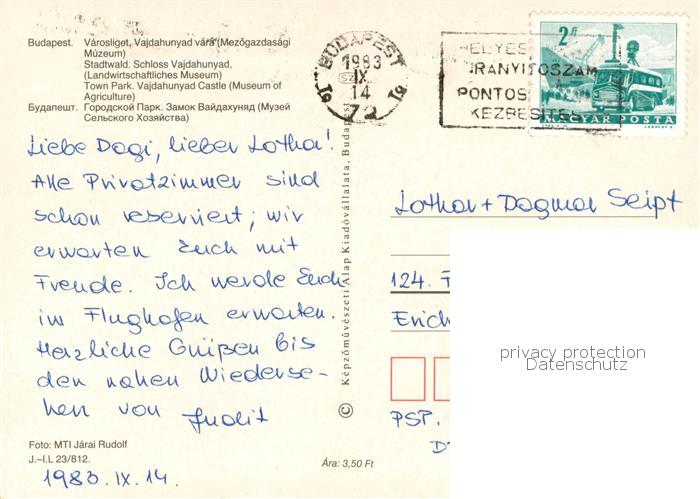 Budapest. Városliget, Vajdahunyad vára (Mezőgazdasági
Múzeum)
Stadtwald. Schloss Vajdahunyad,
(Landwirtschaftliches Museum)
Town Park. Vajdahunyad Castle (Museum of
Agriculture)
Будапешт. Городской Парк. Замок Вайдахуняд (Музей
Сельского Хозяйства)
Liebe Dagi, lieber Lothar!
Alle Privatzimmer sind
schon reserviert; wir
erwarten Euch mit
Freude. Ich werde Euch
im Flughafen erwarten.
Herzliche Grüßen bis
den nahen Wiederse-
hen von Judit
Foto: MTI Járai Rudolf
J.–I.L 23/812.
Ára: 3,50 Ft
1983. IX. 14.
© Képzőművészeti Alap Kiadóvállalata, Budapest
BUDAPEST
1983
IX
14
72
HELYES
IRÁNYÍTÓSZÁM
PONTOS
KÉZBESÍTÉS
2Ft
MAGYAR POSTA
Lothar + Dagmar Seipt
124. F
Erich
PSP.
privacy protection
Datenschutz